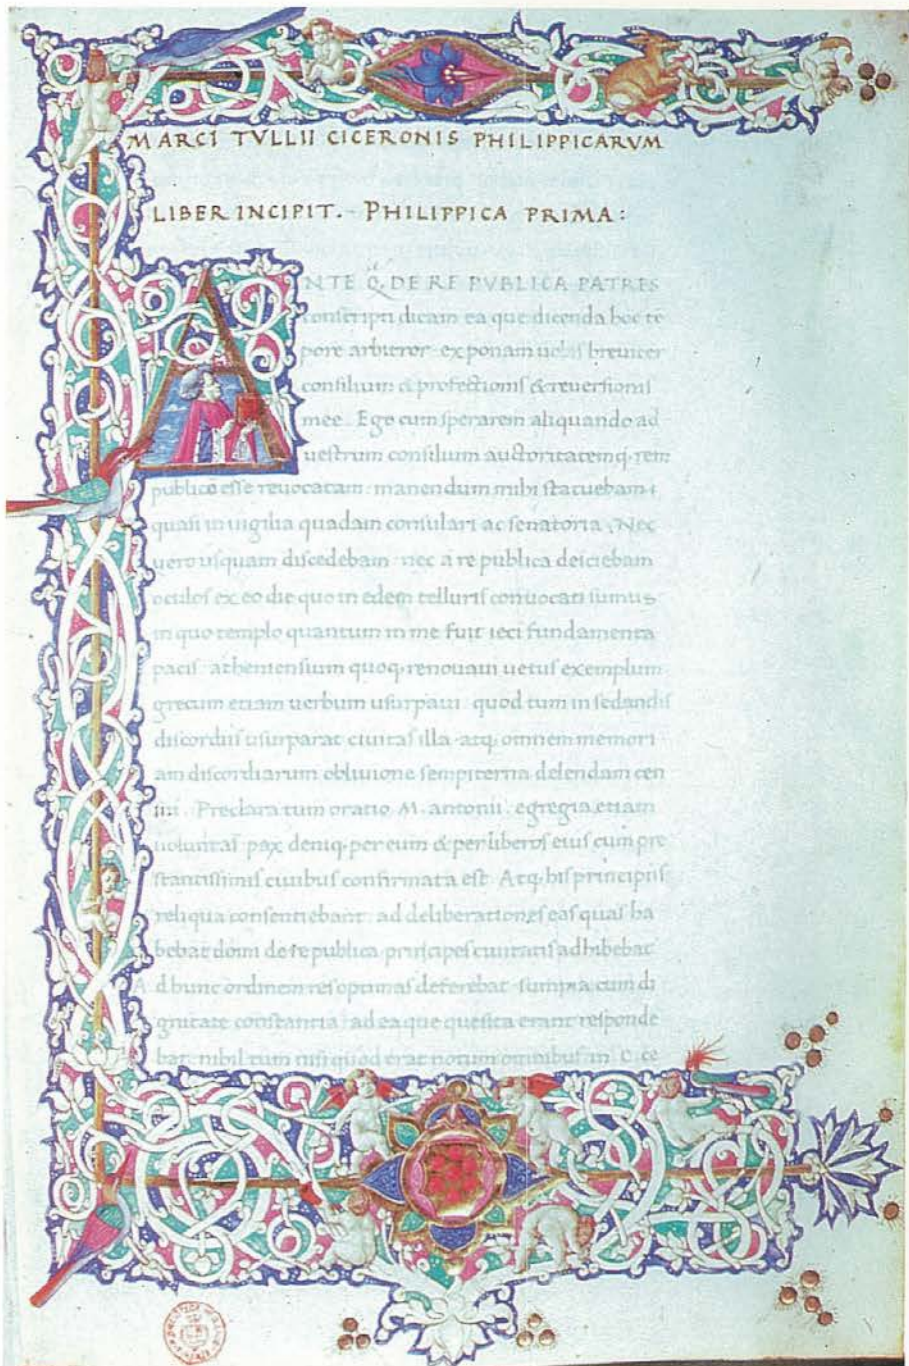 MARCI TVLLII CICERONIS PHILIPPICARVM
LIBER INCIPIT. PHILIPPICA PRIMA:
ANTE Q. DE RE PVBLICA PATRES
conscripti dicam ea que dicenda hoc tē
pore arbitror exponam uobis breuiter
consilium & profectionis & reuersionis
mee. Ego cum sperarem aliquando ad
uestrum consilium auctoritatemq. rem
publicā esse reuocatam manendum mihi statuebam
quasi in uigilia quadam consulari ac senatoria. Nec
uero usquam discedebam nec a re publica deiciebam
oculos ex eo die quo in edem telluris conuocati sumus
in quo templo quantum in me fuit ieci fundamenta
pacis atheniensium quoq. renouaui uetus exemplum
grecum etiam uerbum usurpaui quod tum in sedandis
discordiis usurparat ciuitas illa atq. omnem memori
am discordiarum obliuione sempiterna delendam cen
sui. Preclara tum oratio M. antonii egregia etiam
uoluntas pax deniq. per eum & per liberos eius cum pre
stantissimis ciuibus confirmata est. Atq. his principiis
reliqua consentiebant ad deliberationes eas quas ha
bebat domi de re publica principes ciuitatis adhibebat
Ad hunc ordinem res optimas deferebat summa cum di
gnitate constantia ad ea que quesita erant responde
bat nihil tum nisi quod erat notum omnibus in C. ce